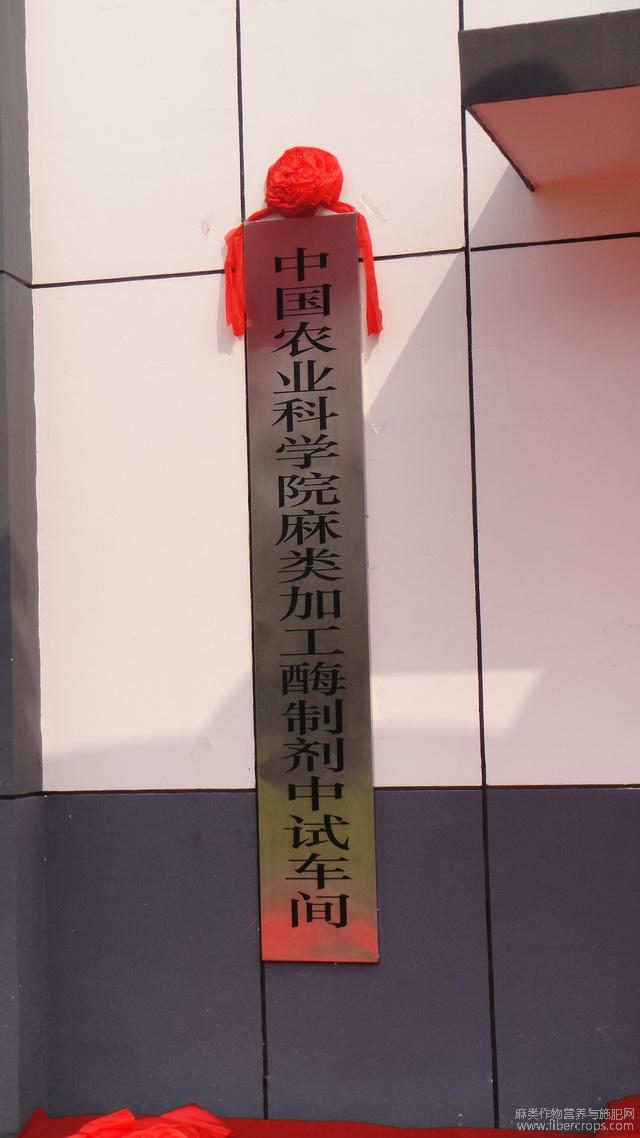 中国农业科学院麻类加工酶制剂中试车间
麻类作物营养与施肥网
www.fibercrops.com